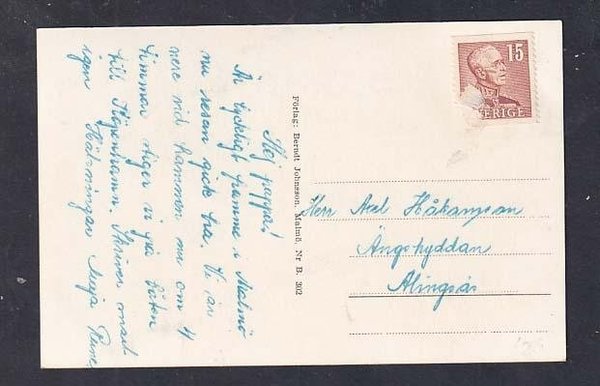 Hej pappa!
Är lyckligt framme i Malmö
nu resan gick bra. Vi är
nere vid hamnen nu om 4
timmar stiger vi på båten
till Köpenhamn. Skriver snart
igen Hälsningar Maja
Förlag: Berndt Johnsson, Malmö, Nr B. 302
15
SVERIGE
Herr Axel Håkanson
Ängshyddan
Alingsås